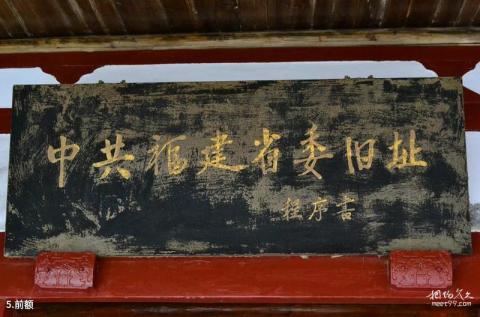 中共福建省委旧址
程序书
5.前额
meet99.com